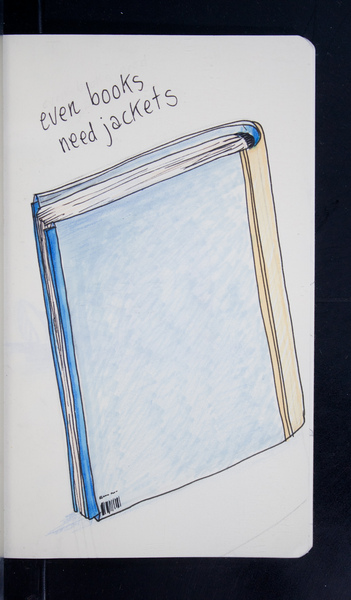 even books
need jackets